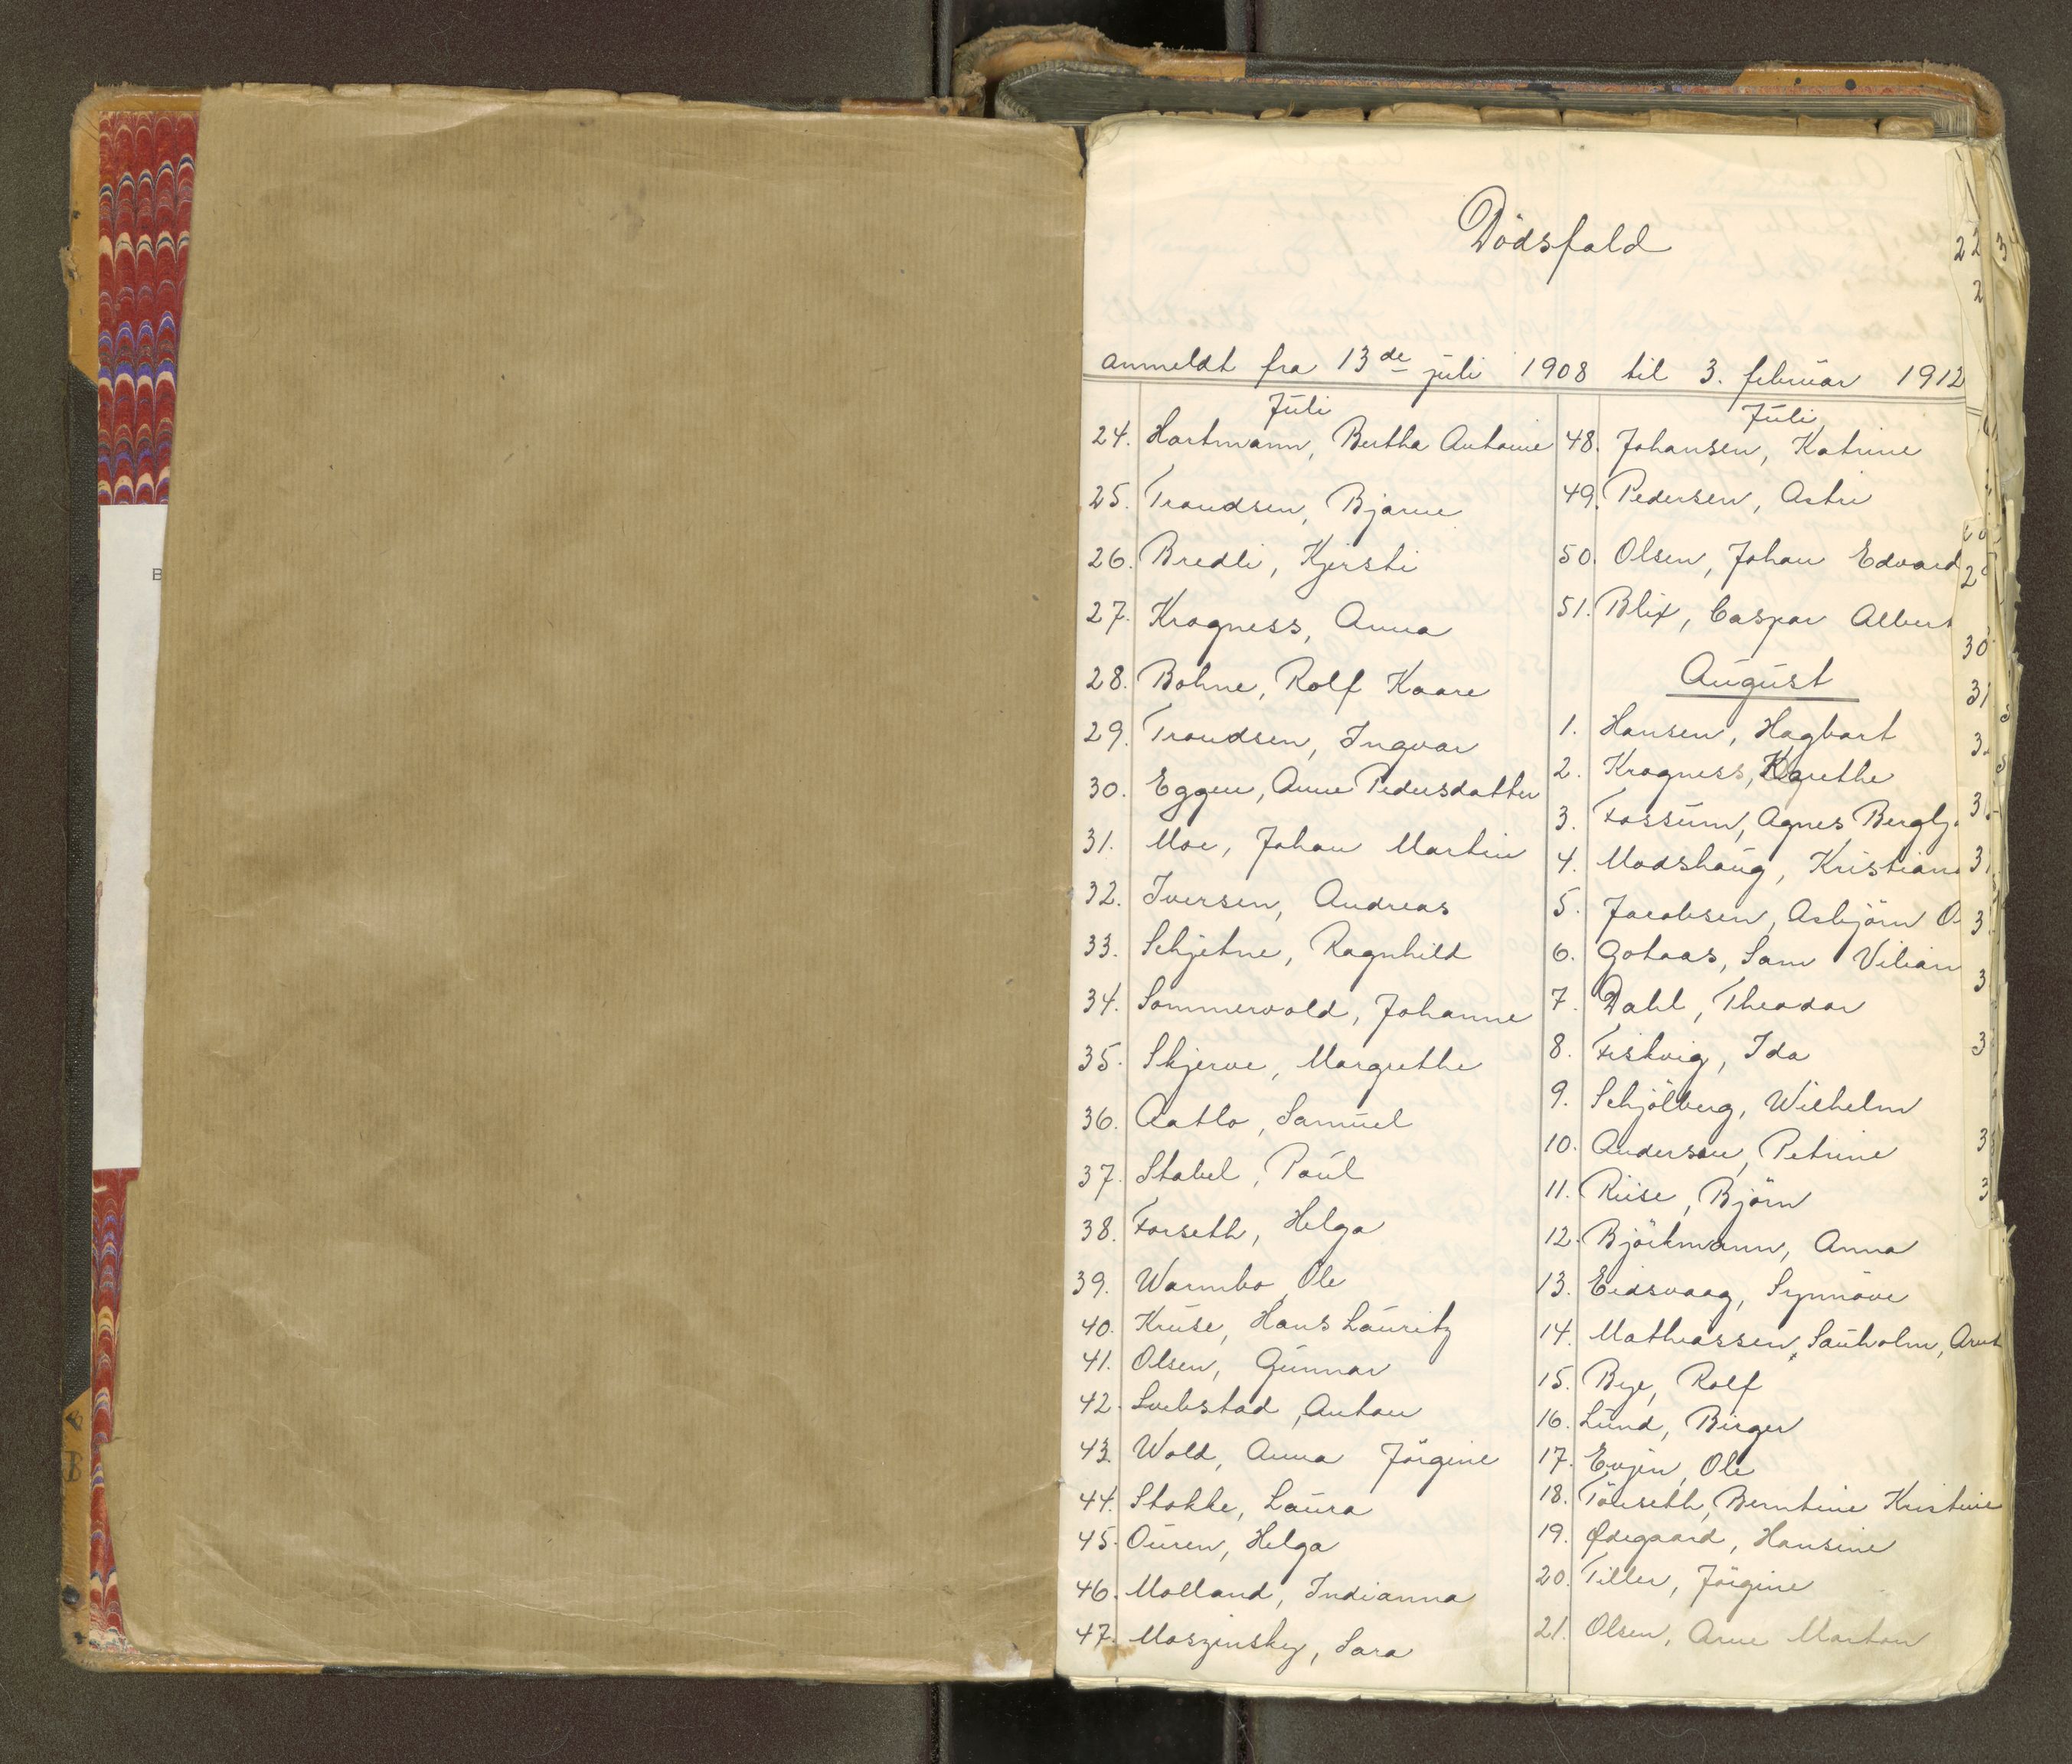 Dödsfald
anmeldt fra 13de juli 1908 til 3. februar 1912
Juli
24. Hartmann, Bertha Antonie
25. Trondsen, Bjarne
26. Bredli, Kjersti
27. Kragness, Anna
28. Bohne, Rolf Kaare
29. Trondsen, Ingvar
30. Eggen, Anne Pedersdatter
31. Moe, Johan Martin
32. Iversen, Andreas
33. Schjetne, Ragnhild
34. Sommervold, Johanne
35. Skjerve, Margrethe
36. Aatlo, Samuel
37. Stabel, Paul
38. Forseth, Helga
39. Warmbo, Ole
40. Kruse, Hans Lauritz
41. Olsen, Gunnar
42. Anton
43. Wold, Anna Jörgine
44. Stokke, Laura
45. Ouren, Helga
46. Molland, Indianna
47. Moszinsky, Sara
Juli
48. Johansen, Katrine
49. Pedersen, Astri
50. Olsen, Johan Edvard
51. Blix, Caspar Albert
August
1. Hansen, Hagbart
2. Kragness,
3. Fossum, Agnes
4. Madshaug, Kristian
5. Jacobsen, Asbjörn O
6. Gotaas, Sam Viliam
7. Dahl, Theodor
8. Fiskvig, Ida
9. Schjölberg, Wilhelm
10. Anderson, Petrine
11. Riise, Björn
12. Björkmann, Anna
13. Eidsvaag, Synnöve
14. Mathiassen,
15. Bye, Rolf
16. Lund, Birger
17. Evjen, Ole
18. Tönseth, Berntine Kristine
19. Ødegaard, Hansine
20. Tiller, Jörgine
21. Olsen, Arne Morton